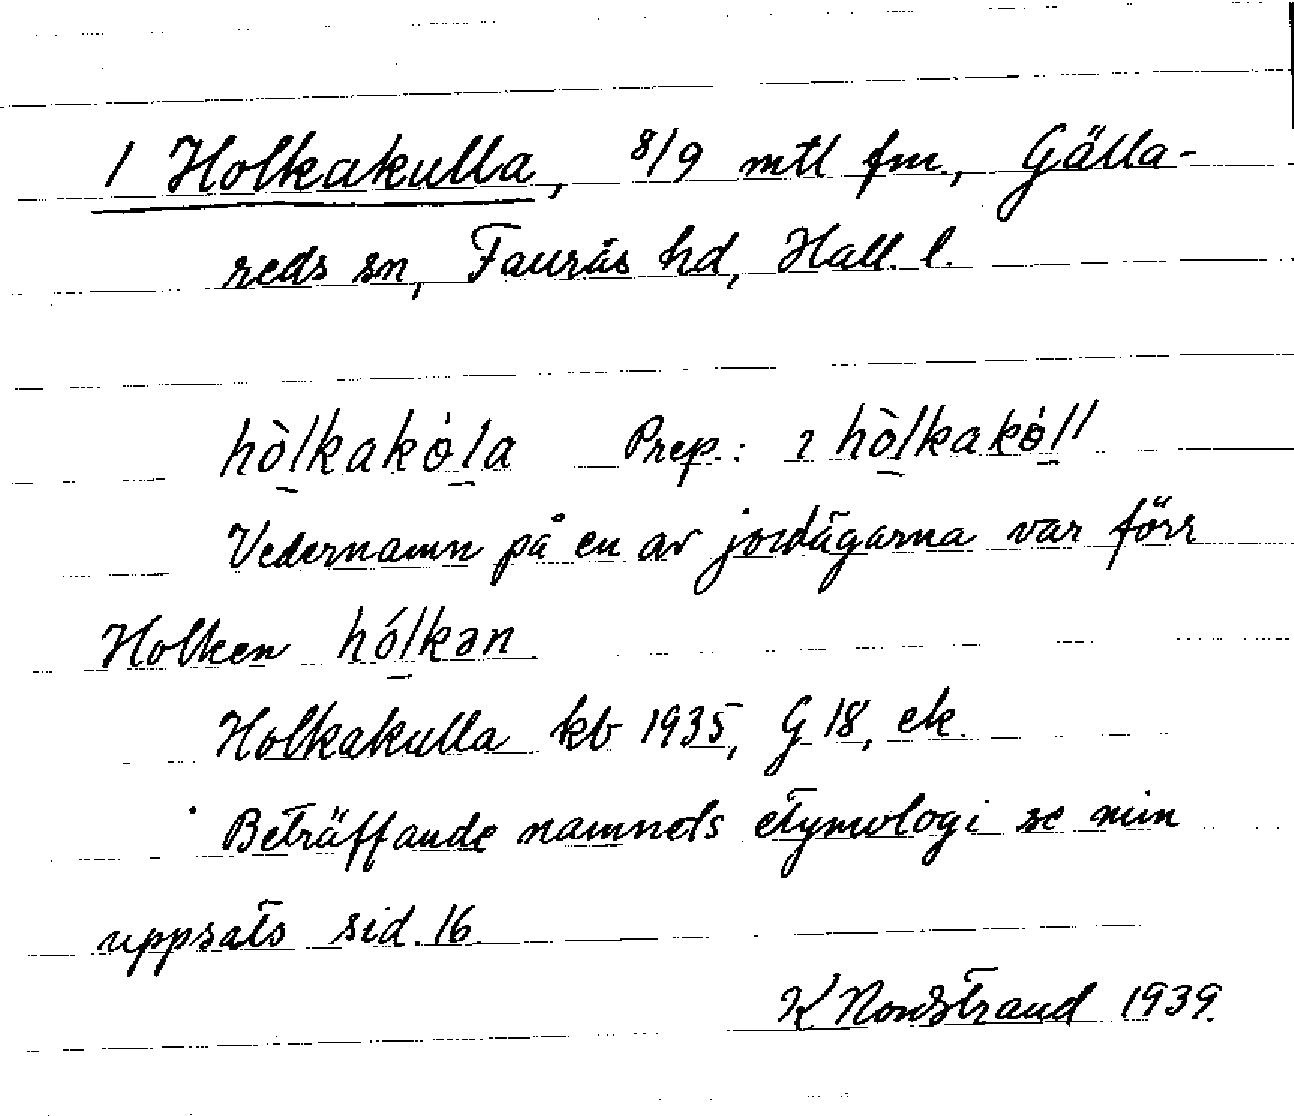 1 Holkakulla, 8/9 mtl fm., Gälla-
reds sn, Faurås hd, Hall. l.
hòlkakǿla Prep.: ı hòlkakǿll
Vedernamn på en av jordägarna var förr
Holken hólkən
Holkakulla kb 1935, G 18, ek.
Beträffande namnets etymologi se min
uppsats sid. 16.
K Nordstrand 1939.